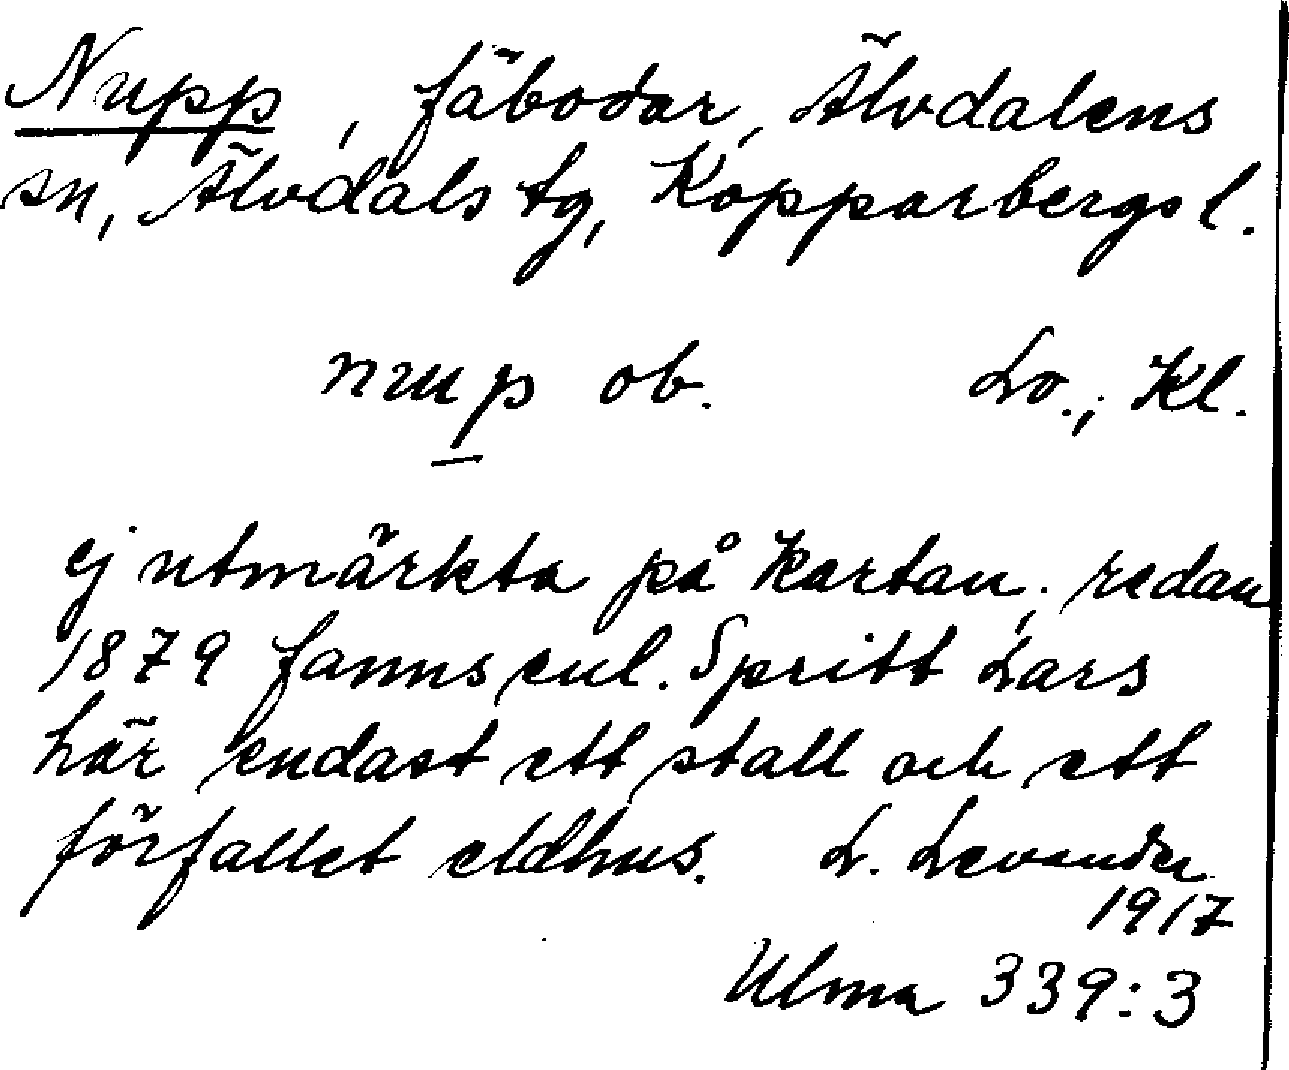 Nupp, fäbodar, Älvdalens
sn, Älvdals tg, Kopparbergs l.
ob. Lo., Kl.
ej utmärkta på kartan; redan
1879 fanns enl. Spritt Lars
här endast ett stall och ett
förfallet eldhus. L. Levander
1917
Ulma 339:3